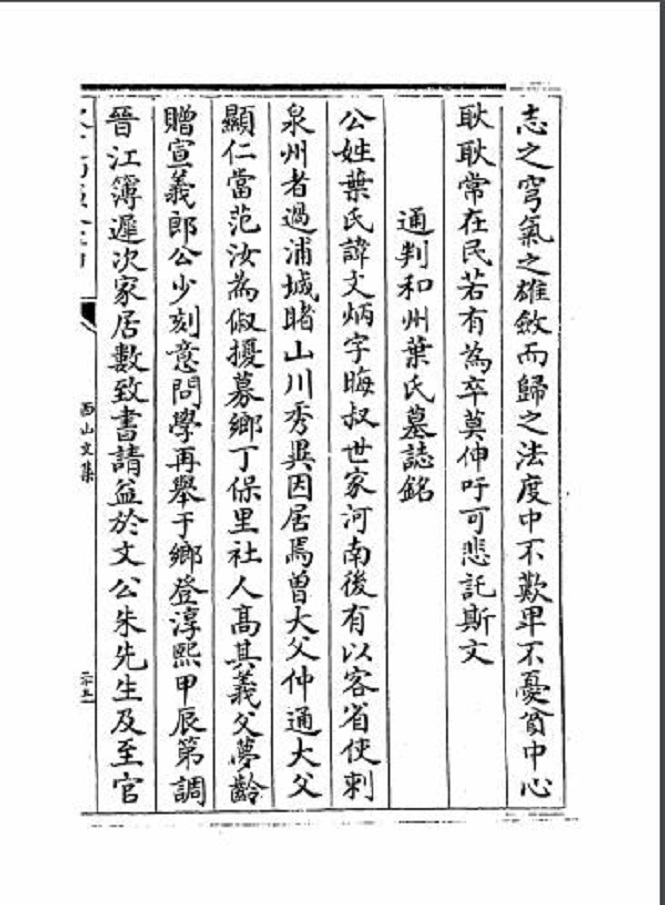 志之穹氣之雄斂而歸之法度中不歎卑不憂貧中心
耿耿常在民若有為卒莫伸吁可悲託斯文
通判和州葉氏墓誌銘
公姓葉氏諱文炳字晦叔世家河南後有以客省使刺
泉州者過浦城睹山川秀異因居焉曾大父仲通大父
顯仁當范汝為俶擾募鄉丁保里社人高其義父夢齡
贈宣義郎公少刻意問學再舉于鄉登淳熙甲辰第調
晉江簿遲次家居數致書請益於文公朱先生及至官
西山文集